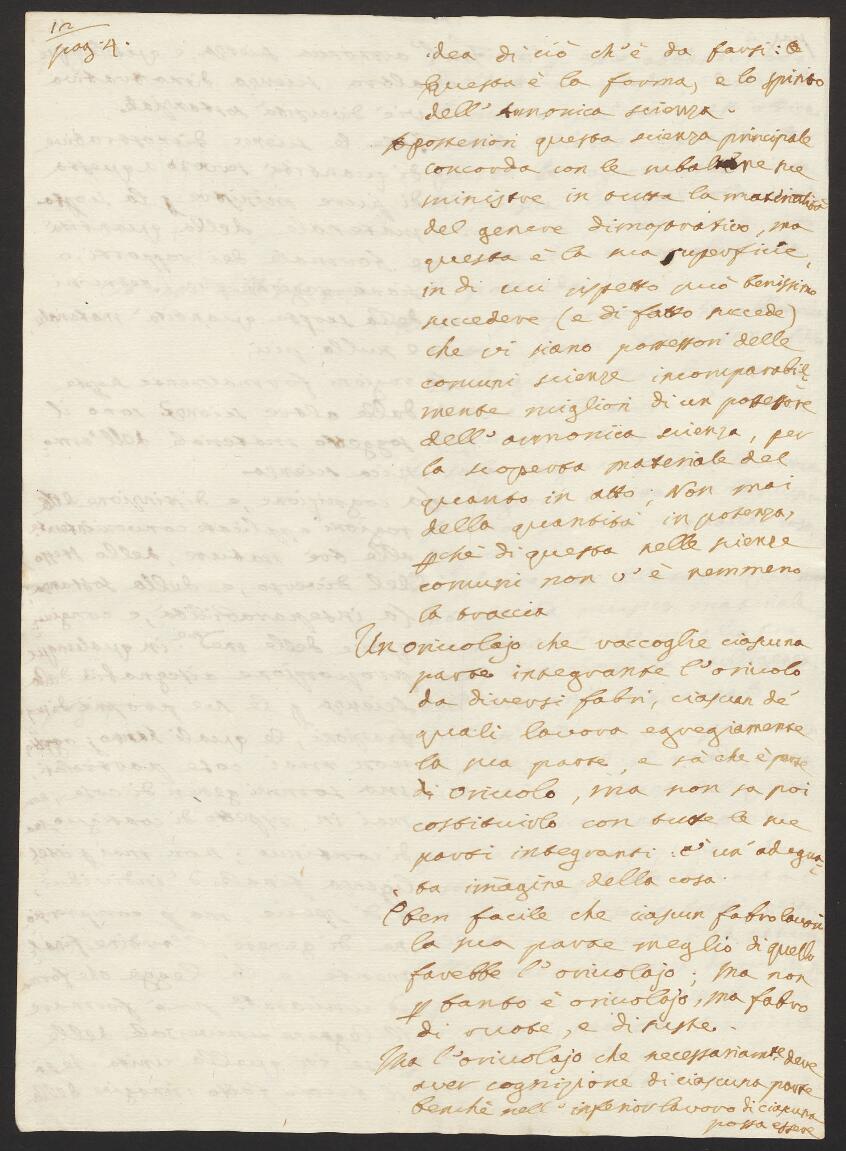 12
pag: 4.
dea di ciò ch'è da farsi: e
questa è la forma, e lo spirito
dell'armonica scienza.
A posteriori questa scienza principale
concorda con le subalterne sue
ministre in tutta la materialità
del genere dimostrativo, ma
questa è la sua superficie,
in di cui rispetto può benissimo
succedere (e di fatto succede)
che vi siano possessori delle
comuni scienze incomparabil-
mente migliori di un possessore
dell'armonica scienza, per
la scoperta materiale del
quanto in atto; Non mai
della quantità in potenza,
pchè di questa nelle scienze
comuni non v'è nemmeno
la traccia
Un oriuolajo che raccoglie ciascuna
parte integrante l'oriuolo
da diversi fabri, ciascun de'
quali lavora egregiamente
la sua parte, e sà che è parte
di oriuolo, ma non sa poi
costituirlo con tutte le sue
parti integranti: è un'adegua-
ta imagine della cosa.
È ben facile che ciascun fabro lavori
la sua parte meglio di quello
farebbe l'oriuolajo; Ma non
p tanto è oriuolajo, ma fabro
di ruote, e di suste.
Ma l'oriuolajo che necessariamte deve
aver cognizione di ciascuna parte
benchè nell'inferior lavoro di ciascuna
possa essere